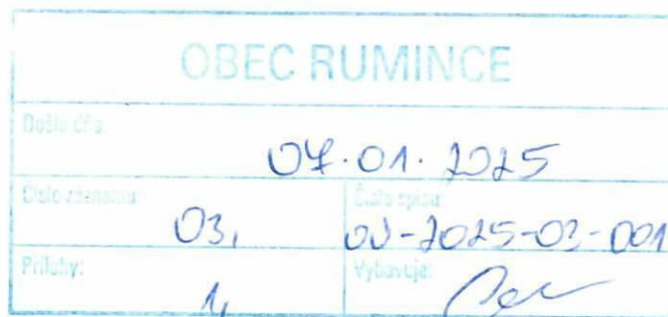 OBEC RUMINCE
Došlo dňa:
07.01.2025
Číslo záznamu: Číslo spisu:
03, OU-2025-03-001
Prílohy: Vybavuje:
1,